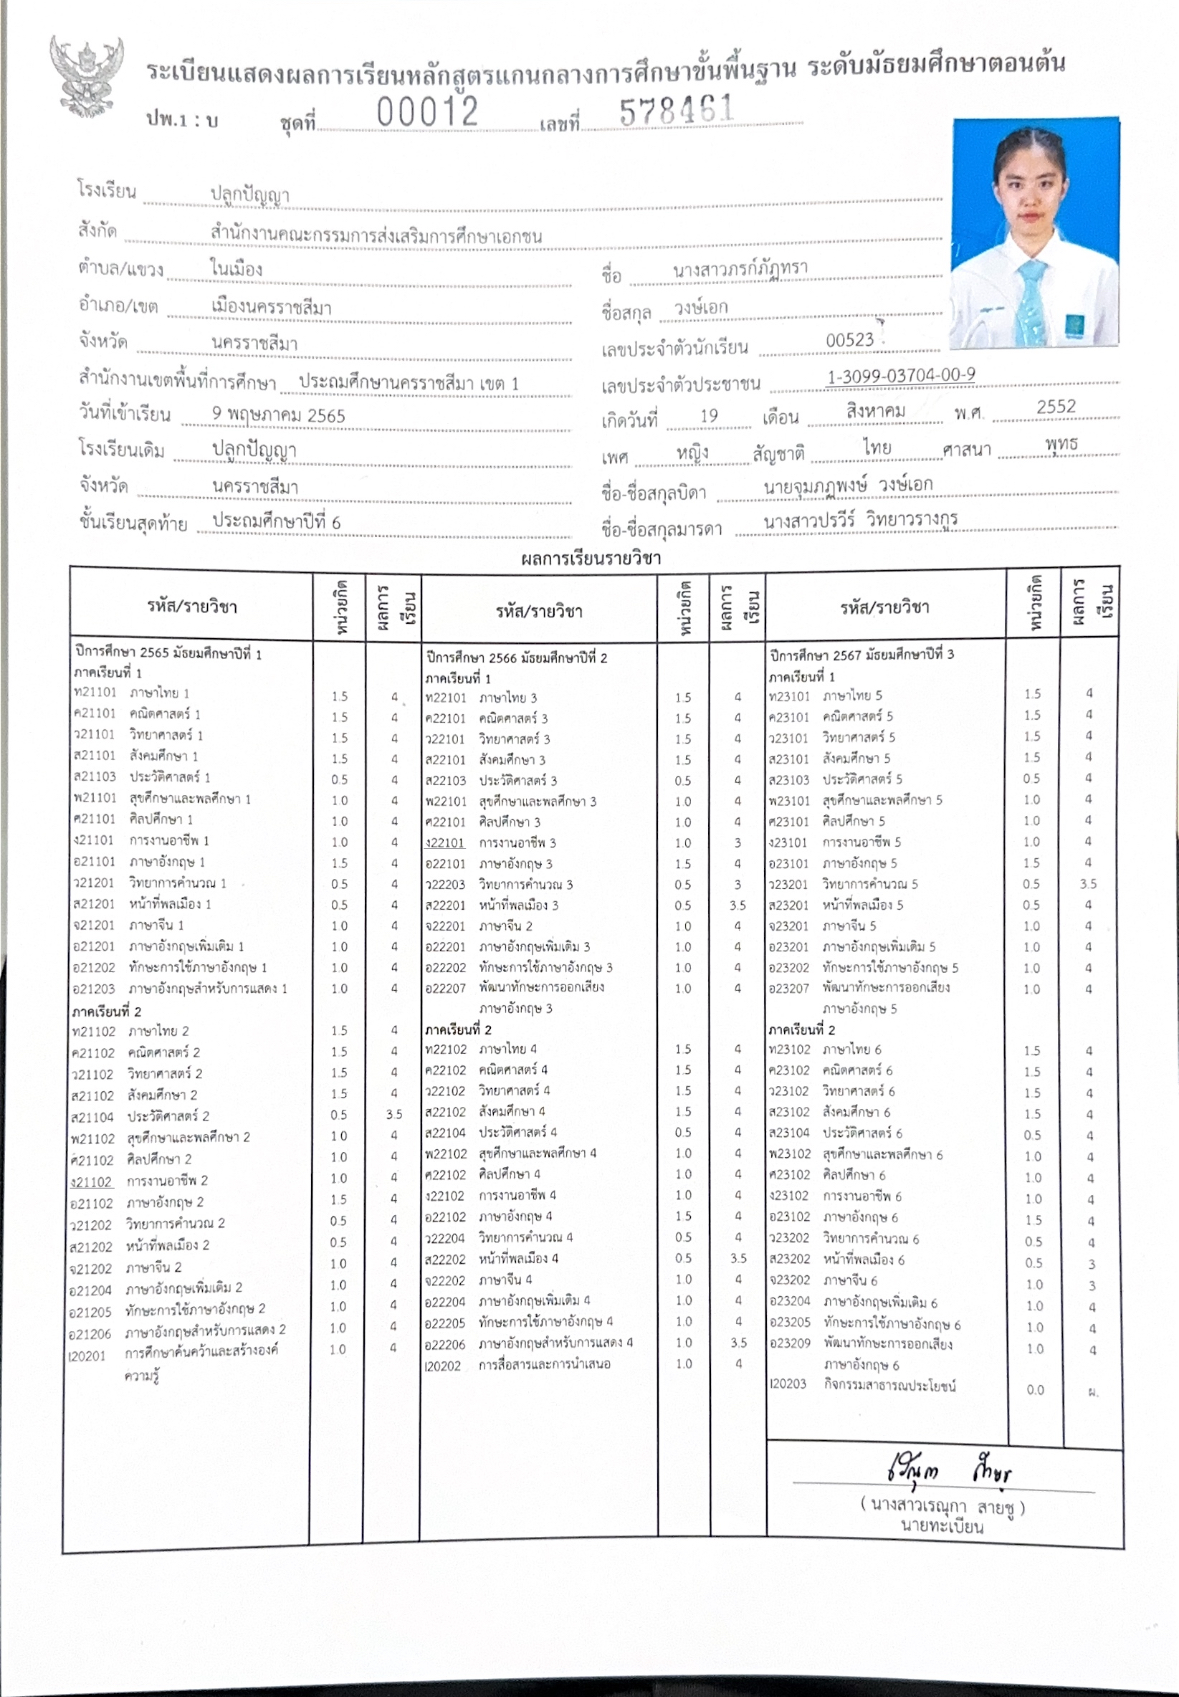 ระเบียนแสดงผลการเรียนหลักสูตรแกนกลางการศึกษาขั้นพื้นฐาน ระดับมัธยมศึกษาตอนต้น
ปพ.1 : บ ชุดที่ 00012 เลขที่ 578461
โรงเรียน ปลูกปัญญา
สังกัด สำนักงานคณะกรรมการส่งเสริมการศึกษาเอกชน
ตำบล/แขวง ในเมือง
อำเภอ/เขต เมืองนครราชสีมา
จังหวัด นครราชสีมา
สำนักงานเขตพื้นที่การศึกษา ประถมศึกษานครราชสีมา เขต 1
วันที่เข้าเรียน 9 พฤษภาคม 2565
โรงเรียนเดิม ปลูกปัญญา
จังหวัด นครราชสีมา
ชั้นเรียนสุดท้าย ประถมศึกษาปีที่ 6
ชื่อ นางสาวภรก์ภัฏทรา
ชื่อสกุล วงษ์เอก
เลขประจำตัวนักเรียน 00523
เลขประจำตัวประชาชน 1-3099-03704-00-9
เกิดวันที่ 19 เดือน สิงหาคม พ.ศ. 2552
เพศ หญิง สัญชาติ ไทย ศาสนา พุทธ
ชื่อ-ชื่อสกุลบิดา นายจุมภฏพงษ์ วงษ์เอก
ชื่อ-ชื่อสกุลมารดา นางสาวปรวีร์ วิทยาวรางกูร
ผลการเรียนรายวิชา
รหัส/รายวิชา หน่วยกิต ผลการเรียน
ปีการศึกษา 2565 มัธยมศึกษาปีที่ 1
ภาคเรียนที่ 1
ท21101 ภาษาไทย 1 1.5 4
ค21101 คณิตศาสตร์ 1 1.5 4
ว21101 วิทยาศาสตร์ 1 1.5 4
ส21101 สังคมศึกษา 1 1.5 4
ส21103 ประวัติศาสตร์ 1 0.5 4
พ21101 สุขศึกษาและพลศึกษา 1 1.0 4
ศ21101 ศิลปศึกษา 1 1.0 4
ง21101 การงานอาชีพ 1 1.0 4
อ21101 ภาษาอังกฤษ 1 1.5 4
ว21201 วิทยาการคำนวณ 1 0.5 4
ส21201 หน้าที่พลเมือง 1 0.5 4
จ21201 ภาษาจีน 1 1.0 4
อ21201 ภาษาอังกฤษเพิ่มเติม 1 1.0 4
อ21202 ทักษะการใช้ภาษาอังกฤษ 1 1.0 4
อ21203 ภาษาอังกฤษสำหรับการแสดง 1 1.0 4
ภาคเรียนที่ 2
ท21102 ภาษาไทย 2 1.5 4
ค21102 คณิตศาสตร์ 2 1.5 4
ว21102 วิทยาศาสตร์ 2 1.5 4
ส21102 สังคมศึกษา 2 1.5 4
ส21104 ประวัติศาสตร์ 2 0.5 3.5
พ21102 สุขศึกษาและพลศึกษา 2 1.0 4
ศ21102 ศิลปศึกษา 2 1.0 4
ง21102 การงานอาชีพ 2 1.0 4
อ21102 ภาษาอังกฤษ 2 1.5 4
ว21202 วิทยาการคำนวณ 2 0.5 4
ส21202 หน้าที่พลเมือง 2 0.5 4
จ21202 ภาษาจีน 2 1.0 4
อ21204 ภาษาอังกฤษเพิ่มเติม 2 1.0 4
อ21205 ทักษะการใช้ภาษาอังกฤษ 2 1.0 4
อ21206 ภาษาอังกฤษสำหรับการแสดง 2 1.0 4
I20201 การศึกษาค้นคว้าและสร้างองค์ 1.0 4
ความรู้
รหัส/รายวิชา หน่วยกิต ผลการเรียน
ปีการศึกษา 2566 มัธยมศึกษาปีที่ 2
ภาคเรียนที่ 1
ท22101 ภาษาไทย 3 1.5 4
ค22101 คณิตศาสตร์ 3 1.5 4
ว22101 วิทยาศาสตร์ 3 1.5 4
ส22101 สังคมศึกษา 3 1.5 4
ส22103 ประวัติศาสตร์ 3 0.5 4
พ22101 สุขศึกษาและพลศึกษา 3 1.0 4
ศ22101 ศิลปศึกษา 3 1.0 4
ง22101 การงานอาชีพ 3 1.0 3
อ22101 ภาษาอังกฤษ 3 1.5 4
ว22203 วิทยาการคำนวณ 3 0.5 3
ส22201 หน้าที่พลเมือง 3 0.5 3.5
จ22201 ภาษาจีน 2 1.0 4
อ22201 ภาษาอังกฤษเพิ่มเติม 3 1.0 4
อ22202 ทักษะการใช้ภาษาอังกฤษ 3 1.0 4
อ22207 พัฒนาทักษะการออกเสียง 1.0 4
ภาษาอังกฤษ 3
ภาคเรียนที่ 2
ท22102 ภาษาไทย 4 1.5 4
ค22102 คณิตศาสตร์ 4 1.5 4
ว22102 วิทยาศาสตร์ 4 1.5 4
ส22102 สังคมศึกษา 4 1.5 4
ส22104 ประวัติศาสตร์ 4 0.5 4
พ22102 สุขศึกษาและพลศึกษา 4 1.0 4
ศ22102 ศิลปศึกษา 4 1.0 4
ง22102 การงานอาชีพ 4 1.0 4
อ22102 ภาษาอังกฤษ 4 1.5 4
ว22204 วิทยาการคำนวณ 4 0.5 4
ส22202 หน้าที่พลเมือง 4 0.5 3.5
จ22202 ภาษาจีน 4 1.0 4
อ22204 ภาษาอังกฤษเพิ่มเติม 4 1.0 4
อ22205 ทักษะการใช้ภาษาอังกฤษ 4 1.0 4
อ22206 ภาษาอังกฤษสำหรับการแสดง 4 1.0 3.5
I20202 การสื่อสารและการนำเสนอ 1.0 4
รหัส/รายวิชา หน่วยกิต ผลการเรียน
ปีการศึกษา 2567 มัธยมศึกษาปีที่ 3
ภาคเรียนที่ 1
ท23101 ภาษาไทย 5 1.5 4
ค23101 คณิตศาสตร์ 5 1.5 4
ว23101 วิทยาศาสตร์ 5 1.5 4
ส23101 สังคมศึกษา 5 1.5 4
ส23103 ประวัติศาสตร์ 5 0.5 4
พ23101 สุขศึกษาและพลศึกษา 5 1.0 4
ศ23101 ศิลปศึกษา 5 1.0 4
ง23101 การงานอาชีพ 5 1.0 4
อ23101 ภาษาอังกฤษ 5 1.5 4
ว23201 วิทยาการคำนวณ 5 0.5 3.5
ส23201 หน้าที่พลเมือง 5 0.5 4
จ23201 ภาษาจีน 5 1.0 4
อ23201 ภาษาอังกฤษเพิ่มเติม 5 1.0 4
อ23202 ทักษะการใช้ภาษาอังกฤษ 5 1.0 4
อ23207 พัฒนาทักษะการออกเสียง 1.0 4
ภาษาอังกฤษ 5
ภาคเรียนที่ 2
ท23102 ภาษาไทย 6 1.5 4
ค23102 คณิตศาสตร์ 6 1.5 4
ว23102 วิทยาศาสตร์ 6 1.5 4
ส23102 สังคมศึกษา 6 1.5 4
ส23104 ประวัติศาสตร์ 6 0.5 4
พ23102 สุขศึกษาและพลศึกษา 6 1.0 4
ศ23102 ศิลปศึกษา 6 1.0 4
ง23102 การงานอาชีพ 6 1.0 4
อ23102 ภาษาอังกฤษ 6 1.5 4
ว23202 วิทยาการคำนวณ 6 0.5 4
ส23202 หน้าที่พลเมือง 6 0.5 3
จ23202 ภาษาจีน 6 1.0 3
อ23204 ภาษาอังกฤษเพิ่มเติม 6 1.0 4
อ23205 ทักษะการใช้ภาษาอังกฤษ 6 1.0 4
อ23209 พัฒนาทักษะการออกเสียง 1.0 4
ภาษาอังกฤษ 6
I20203 กิจกรรมสาธารณประโยชน์ 0.0 ผ.
( นางสาวเรณุกา สายชู )
นายทะเบียน